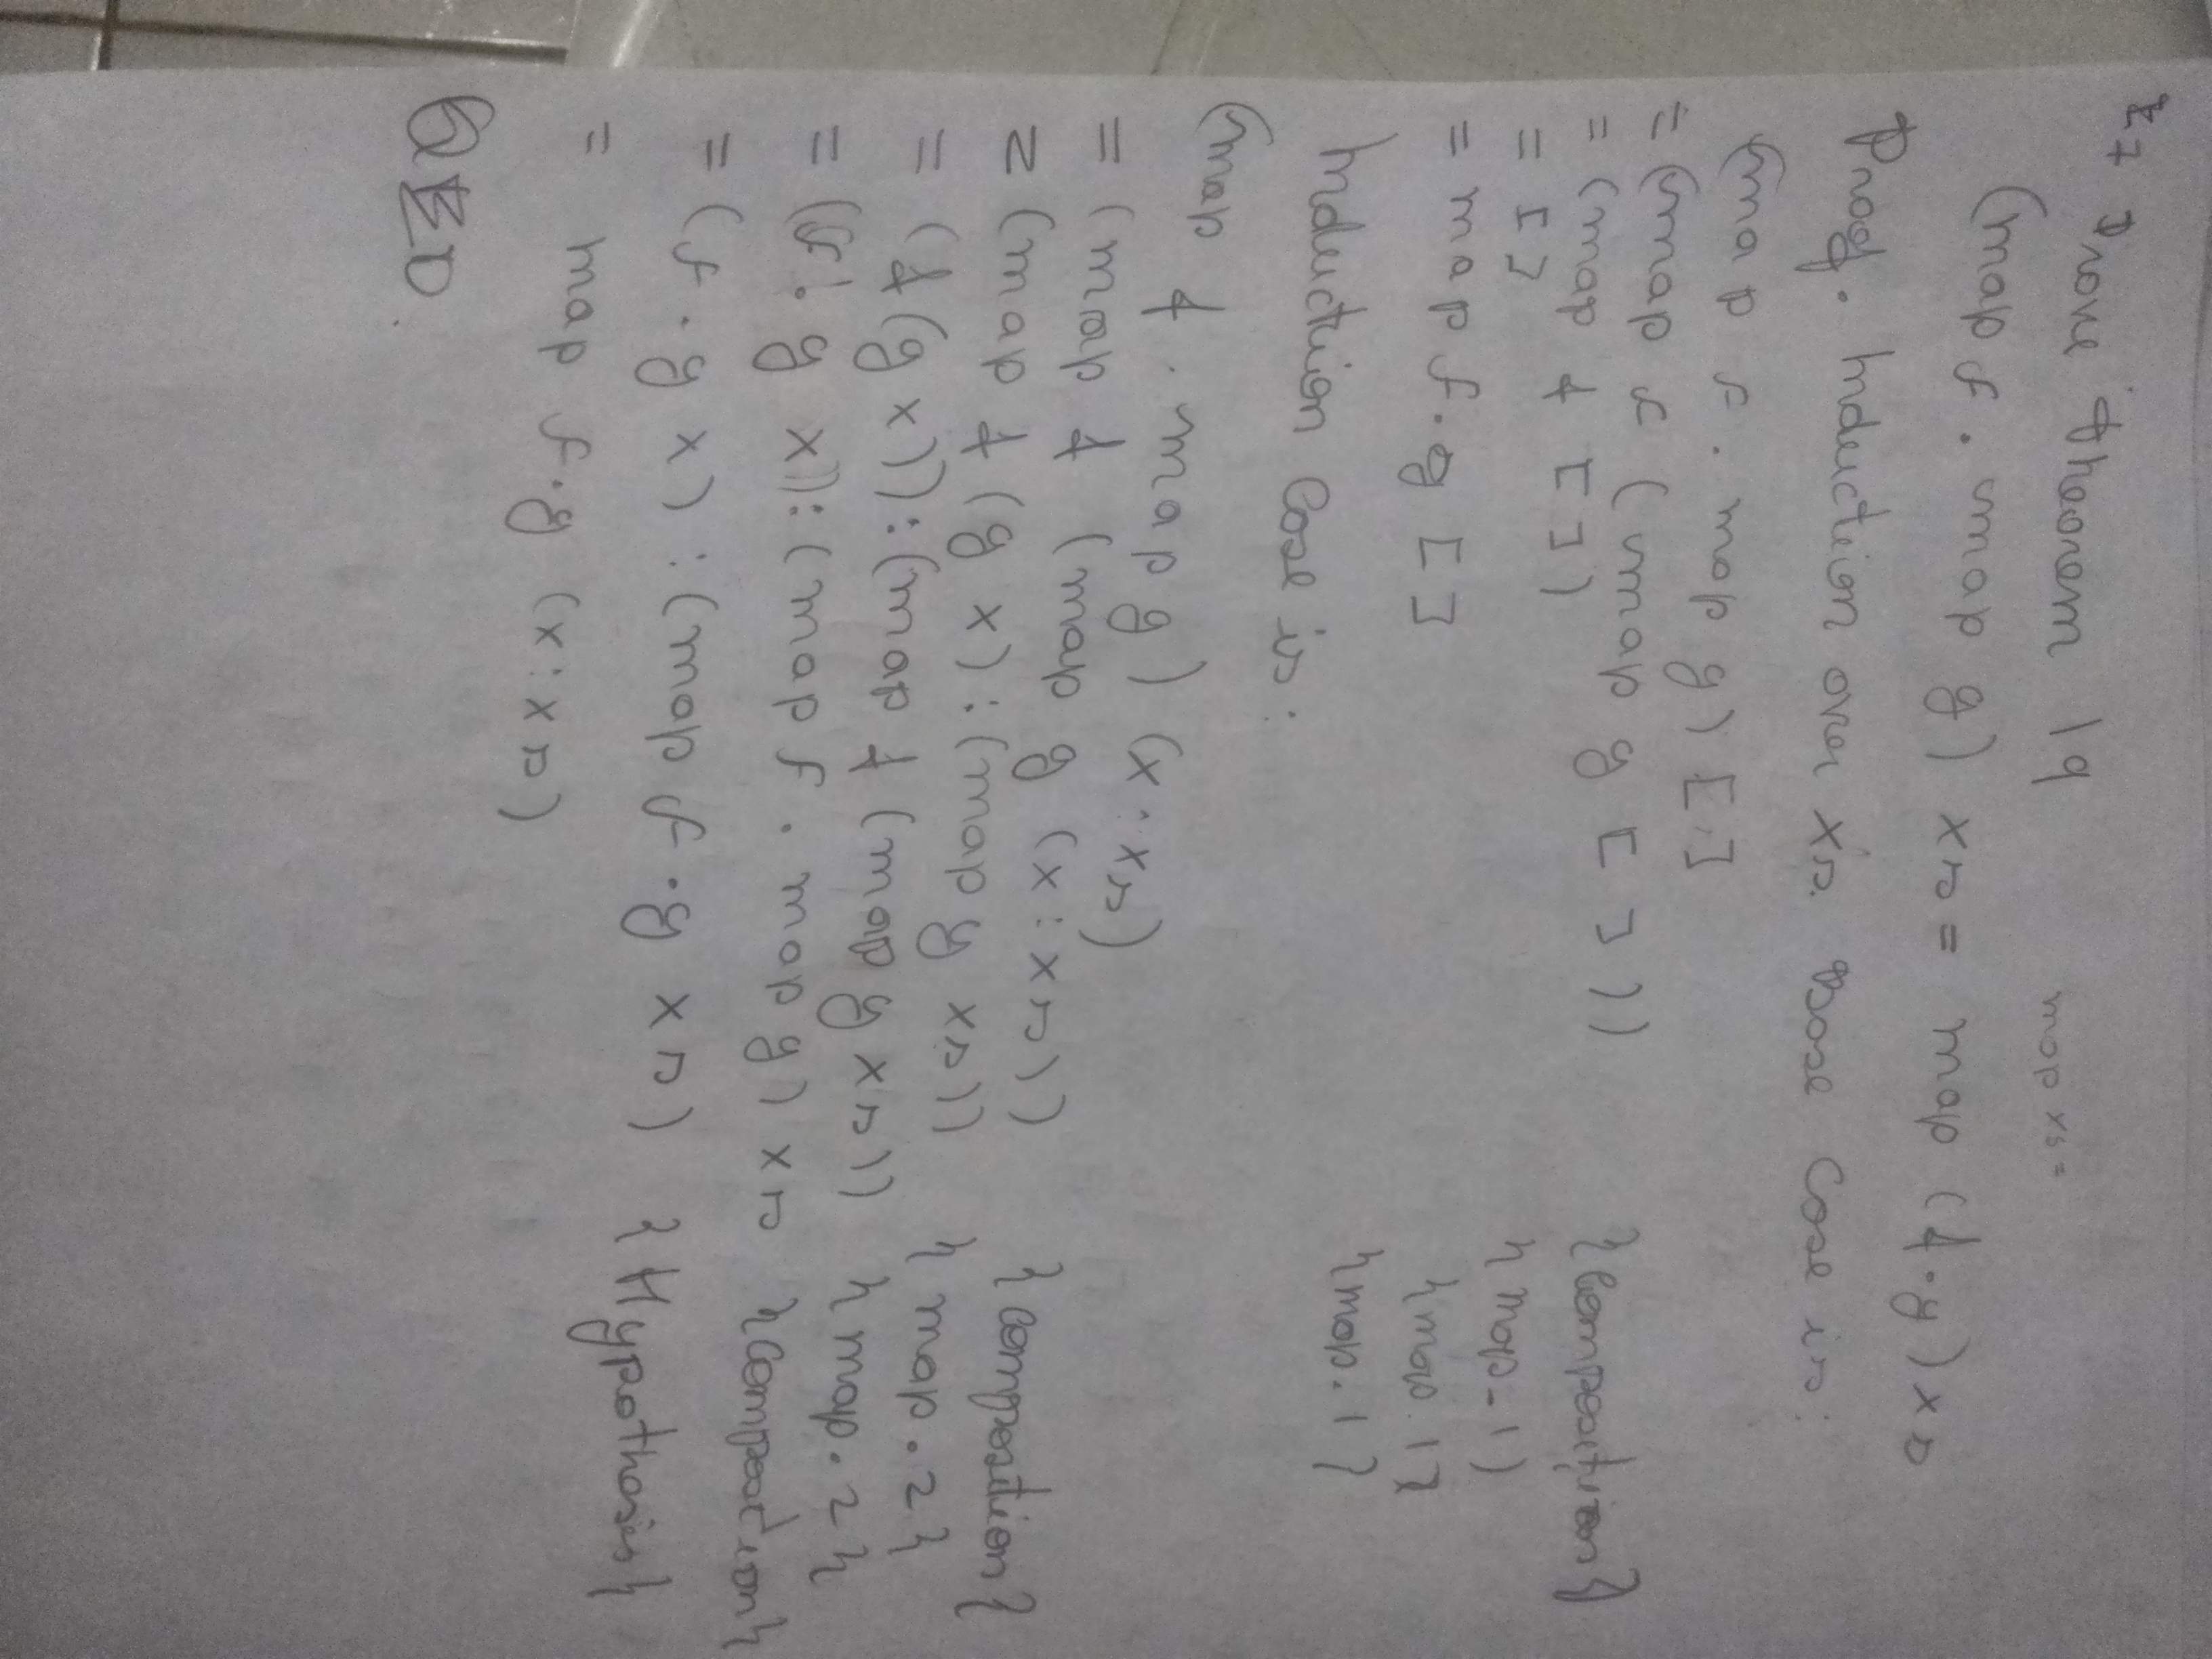 E7 Prove theorem 19
map xs =
(map f . map g) xs = map (f.g) xs
Proof. Induction over xs. Base Case is:
(map f . map g) []
= (map f (map g [])) {composition}
= (map f []) {map.1}
= [] {map.1}
= map f.g [] {map.1}
Induction Case is:
(map f . map g) (x:xs)
= (map f (map g (x:xs)) {composition}
= (map f (g x):(map g xs)) {map.2}
= (f(g x)):(map f (map g xs)) {map.2}
= (f. g x)):(map f . map g) xs {composition}
= (f.g x) : (map f.g xs) {Hypothesis}
= map f.g (x:xs)
QED.